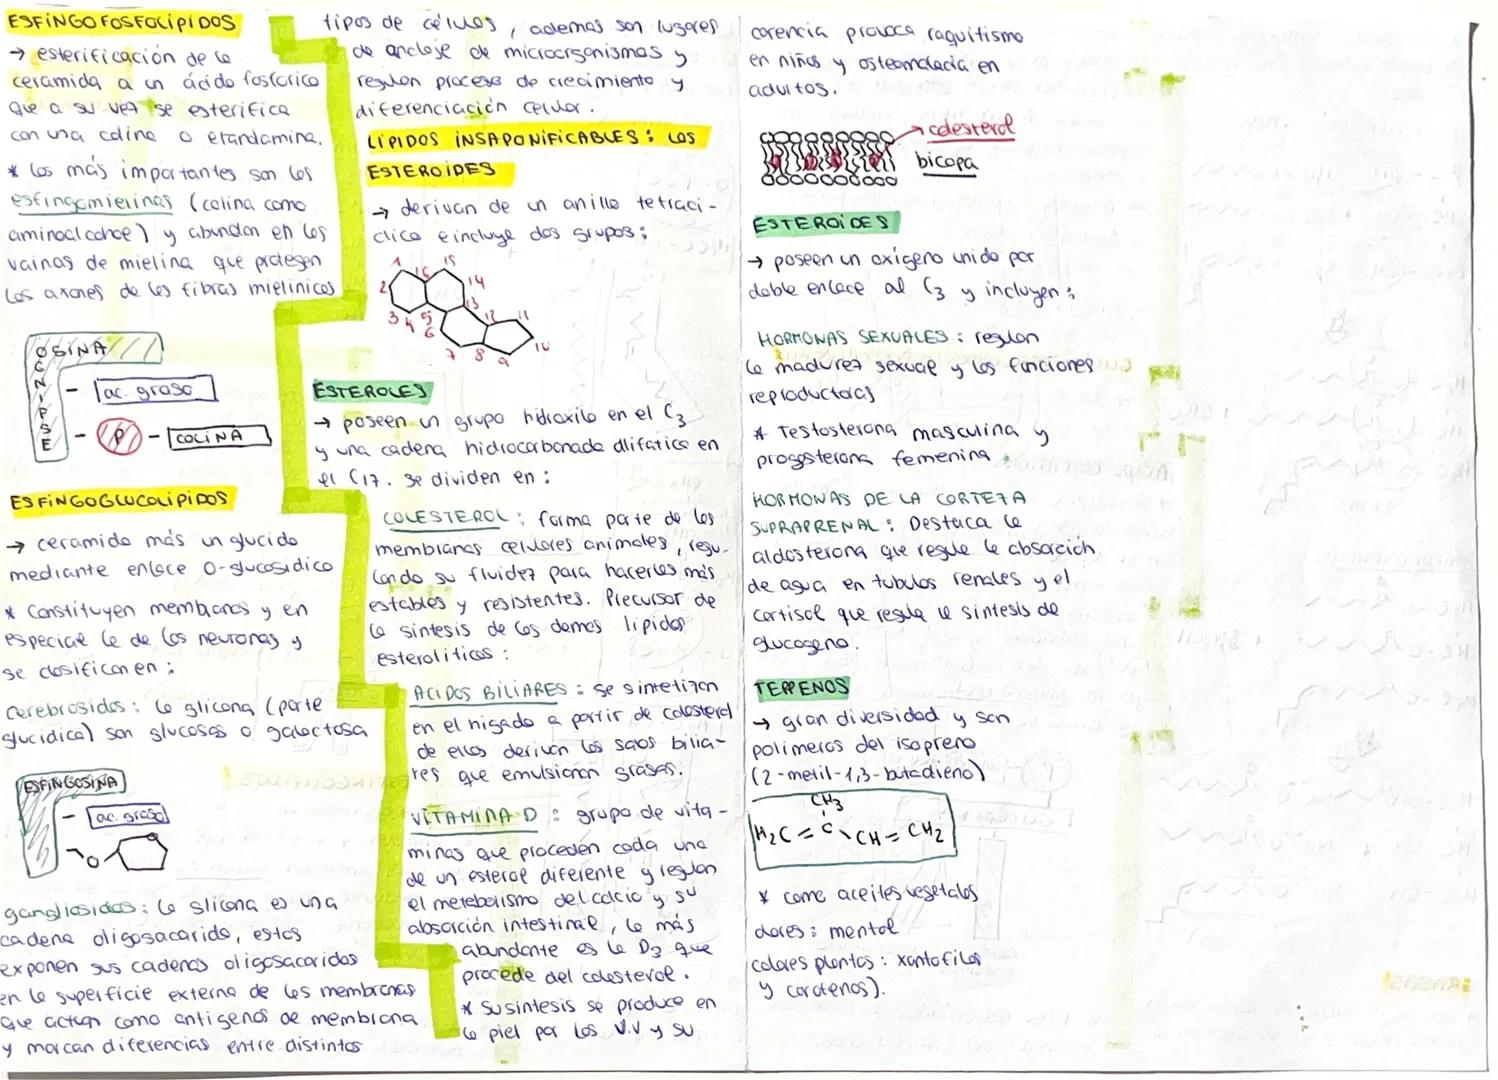 ESFINGOFOSFOLÍPIDOS
→ esterificación de la
ceramida a un ácido fosfórico
que a su vez se esterifica
con una colina o etandamina.
* Los más importantes son los
esfingomielinas (colina como
aminoalcohol) y abundan en las
vainas de mielina que protegen
los axones de las fibras mielínicas
ESFINGOSINA
- ac. graso
- P - COLINA
ESFINGOGLUCOLÍPIDOS
→ ceramida más un glucido
mediante enlace O-glucosídico
* Constituyen membranas y en
especial la de las neuronas y
se clasifican en:
Cerebrosidos: la glicona (parte
glucidica) son glucosas o galactosa
ESFINGOSINA
- ac. graso
O
gangliosidos: la glicona es una
cadena oligosacarida, estos
exponen sus cadenas oligosacaridas
en la superficie externa de las membranas
que actuan como antigenos de membrana
y marcan diferencias entre distintos
tipos de células, ademas son lugares
de anclaje de microorganismos y
regulan procesos de crecimiento y
diferenciación celular.
LÍPIDOS INSAPONIFICABLES: LOS
ESTEROIDES
→ derivan de un anillo tetraci-
clico e incluye dos grupos:
1 2 3 4 5 6 7 8 9 10 11 12 13 14 15 16
ESTEROLES
→ poseen un grupo hidroxilo en el C3
y una cadena hidrocarbonada alifatica en
el C17. se dividen en:
COLESTEROL: forma parte de las
membranas celulares animales, regu-
lando su fluidez para hacerlas más
estables y resistentes. Precursor de
la síntesis de los demas lípidos
esteroliticos:
ACIDOS BILIARES: se sintetizan
en el higado a partir de colesterol
de ellos derivan las sales bilia-
res que emulsionan grasas.
VITAMINA D: grupo de vita-
minas que proceden cada una
de un esterol diferente y regulan
el metabolismo del calcio y su
absorción intestinal, la más
abundante es la D3 que
procede del colesterol.
* Su síntesis se produce en
la piel por los V.V y su
carencia provoca raquitismo
en niños y osteomalacia en
adultos.
→ colesterol
bicapa
ESTEROIDES
→ poseen un oxígeno unido por
doble enlace al C3 y incluyen:
HORMONAS SEXUALES: regulan
la madurez sexual y las funciones
reproductoras
* Testosterona masculina y
progesterona femenina
HORMONAS DE LA CORTEZA
SUPRAPRENAL: Destaca la
aldosterona que regula la absorción
de agua en tubulos renales y el
Cortisol que regula la síntesis de
glucogeno.
TERPENOS
→ gran diversidad y son
polimeros del isopreno
(2-metil-1,3-butadieno)
CH3
H2C = C \ CH = CH2
* como aceites vegetales
olores: mentol
colores plantas: xantofilas
y carotenos).